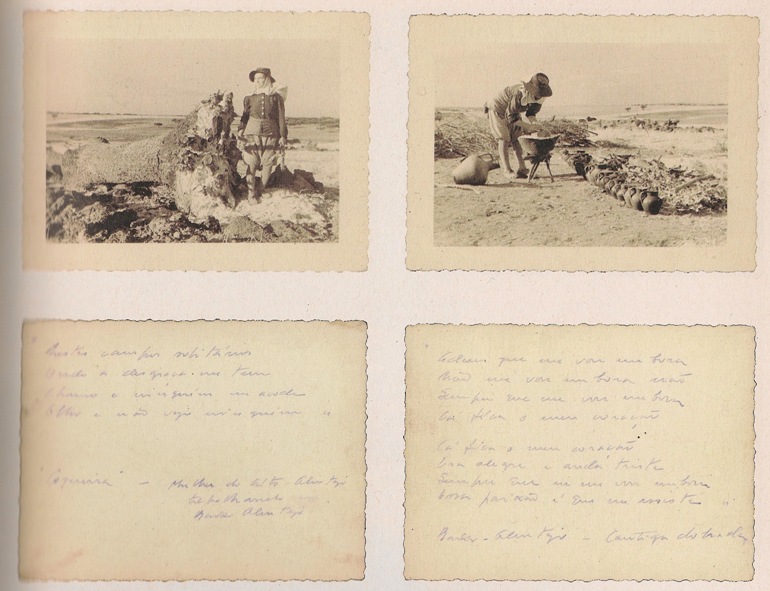 " Nestes campos solitários
Onde a desgraça me tem
Chamo e ninguém me acode
Olho e não vejo ninguém "
" " — Mulher do Alto-Alentejo
trabalhando no
Baixo Alentejo
" Adeus que me vou embora
Não me vou embora não
Sempre que me vou embora
Cá fica o meu coração
Cá fica o meu coração
Era alegre e anda triste
Sempre que me vou embora
paixão é que me assiste "
Baixo-Alentejo — Cantiga dobrada